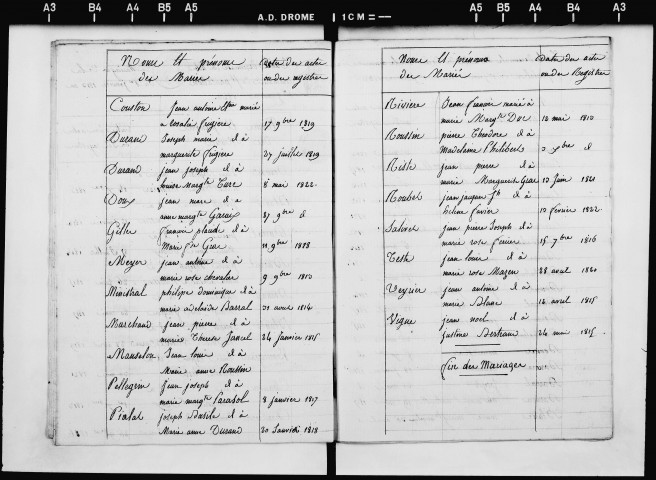 A3 B4 A4 B5 A5
A.D. DROME
1CM=
A5 B5 A4 B4 A3
Noms Et prénoms
des Mariés
Date des actes
ou des registres
Couston jean antoine marié
a rosalie frugière 17 9bre 1819
Durand Joseph marie d à
marguerite frugiere 27 juillet 1819
Durand jean joseph d à
Margte Turc 8 mai 1822
Doux jean marc d a
anne margte Garaix 27 9bre d
Gille françois d à
Marie Gras 11 9bre 1818
Meyer jean antoine d à
marie rose chevalier 9 9bre 1810
Ministral philipe dominique d à
marie adelaide Barral 31 aout 1814
Marchand jean pierre d à
marie Therese Jancel 24 janvier 1815
Manselon Jean louis d à
Marie anne Roussin
Pellegrin Jean joseph d à
marie margte Parasol 8 janvier 1817
Pialat joseph Basile d à
Marie anne Durand 20 Janvier 1818
Noms Et prénoms
des Mariés
Date des actes
ou des Registres
Rivière Jean françois marié à
marie Margte Duc 12 mai 1810
Roussin pierre Théodore d à
Madelaine Philibert d
jean pierre d à
marie Marguerite Gras 10 Juin 1821
Roubet jean jacques d à
10 février 1822
jean pierre Joseph d à
marie rose ferrier 15 7bre 1816
Teste jean louis d à
marie rose Mazen 28 avril 1820
Veyrier jean antoine d à
marie Blanc 12 avril 1815
Vigne jean noel d à
justine Bertrand 24 mai 1815
fin des Mariages